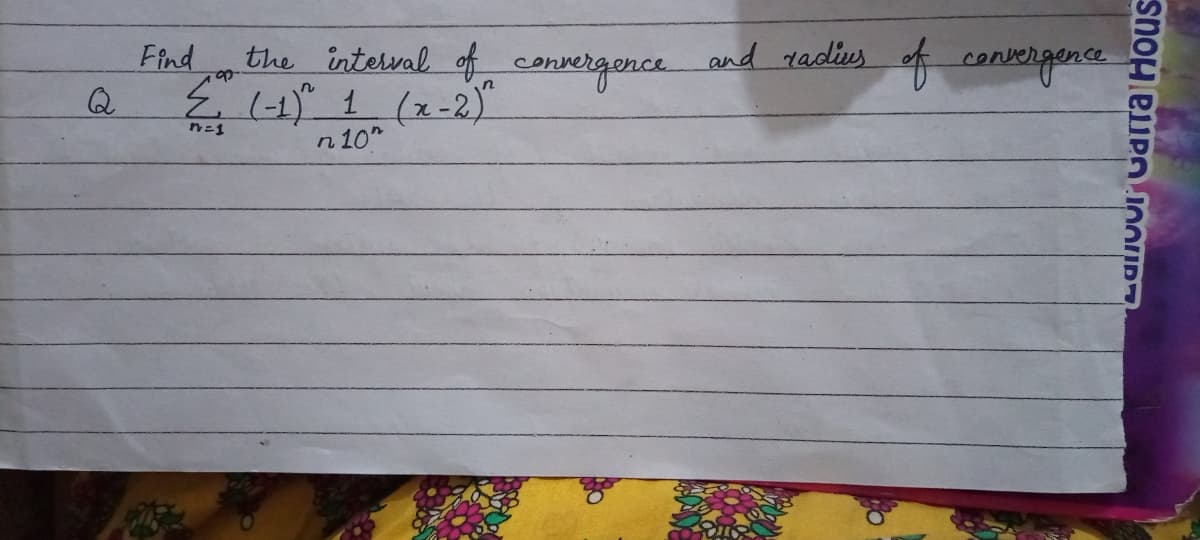 Find the interval of convergence and radius of convergence
Q ∑_{n=1}^{∞} (-1)^n 1/(n 10^n) (x-2)^n